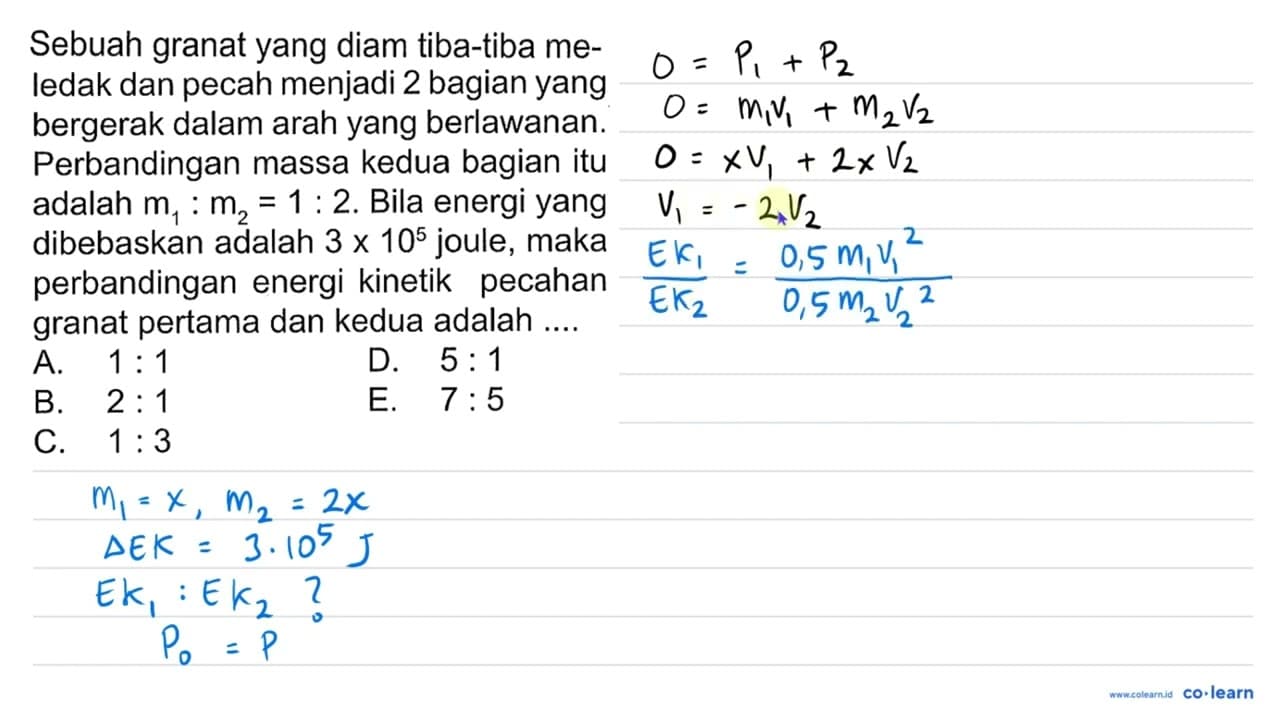 Sebuah granat yang diam tiba-tiba me-
ledak dan pecah menjadi 2 bagian yang
bergerak dalam arah yang berlawanan.
Perbandingan massa kedua bagian itu
adalah m₁ : m₂ = 1 : 2. Bila energi yang
dibebaskan adalah 3 x 10⁵ joule, maka
perbandingan energi kinetik pecahan
granat pertama dan kedua adalah ....
A. 1 : 1
B. 2 : 1
C. 1 : 3
D. 5 : 1
E. 7 : 5
m₁ = x, m₂ = 2x
ΔEK = 3.10⁵ J
Ek₁ : Ek₂ ?
P₀ = P
0 = P₁ + P₂
0 = m₁v₁ + m₂v₂
0 = xv₁ + 2xv₂
v₁ = -2.v₂
Ek₁ / Ek₂ = 0,5 m₁v₁² / 0,5 m₂v₂²
www.colearn.id co·learn